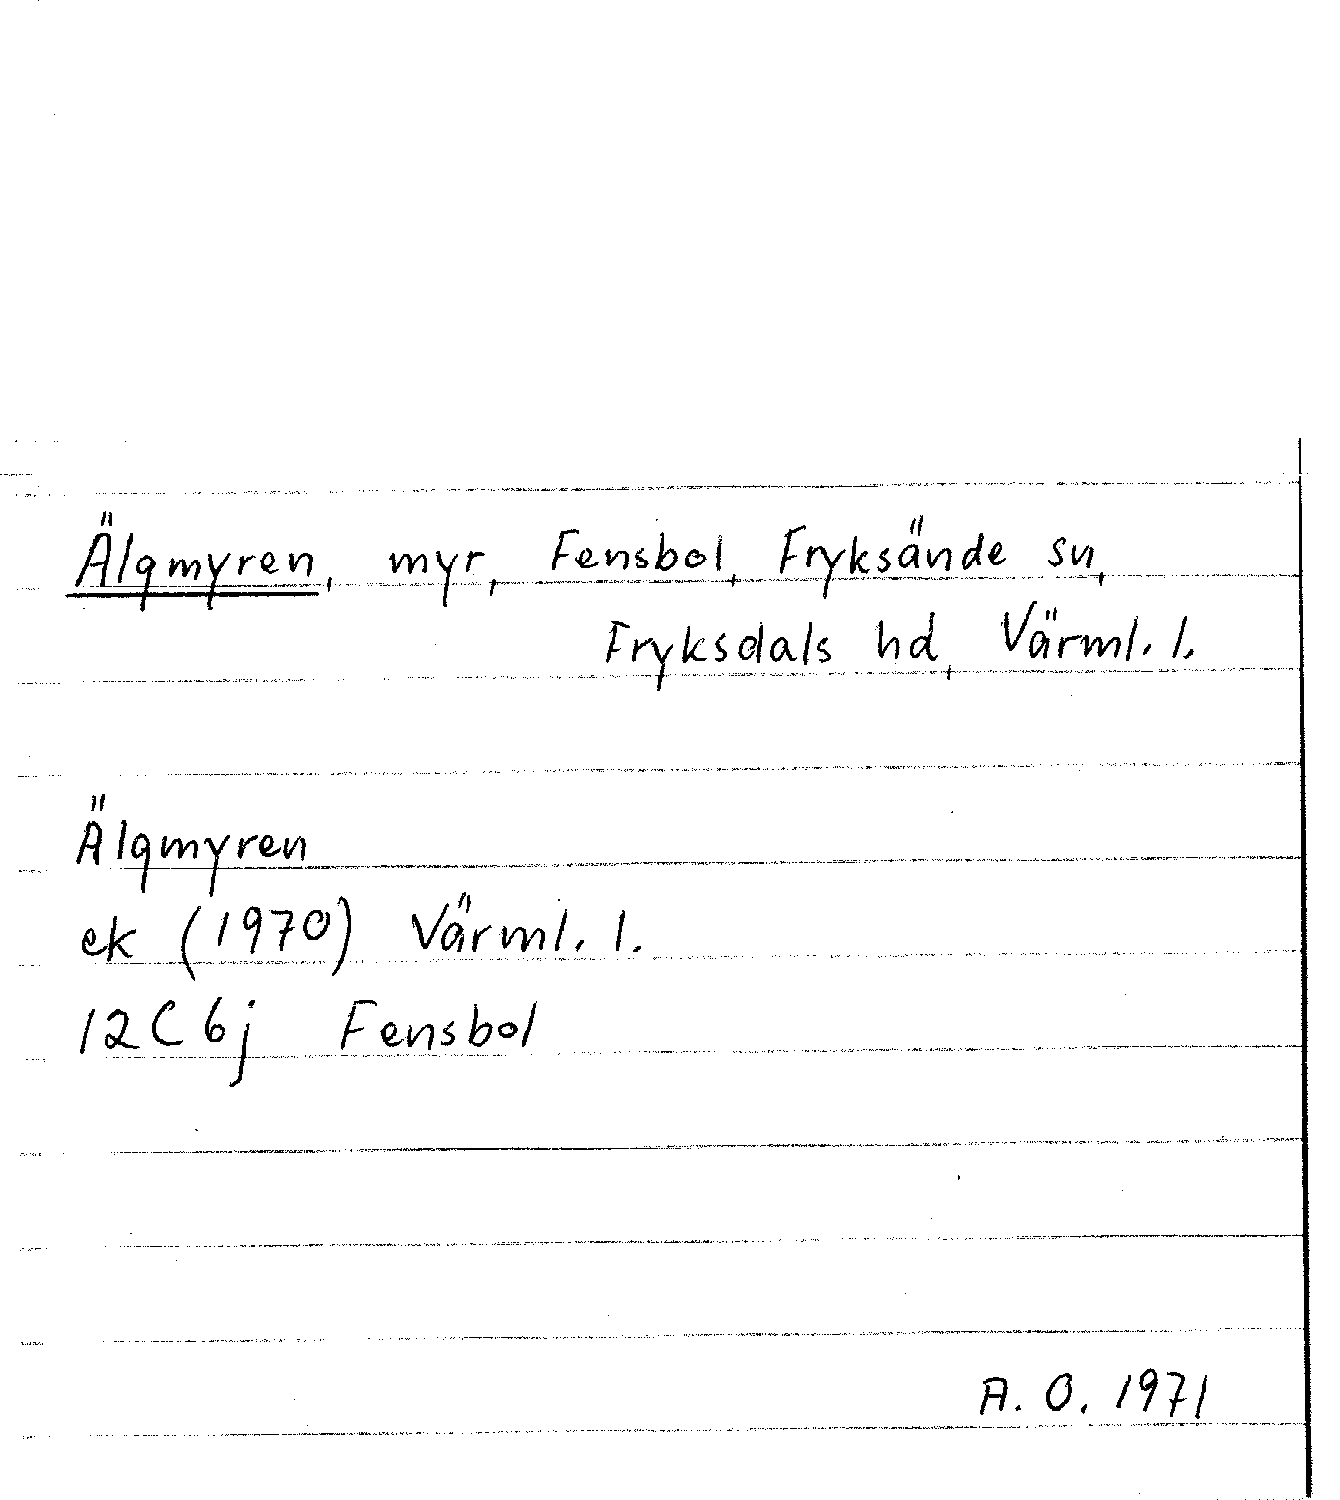 Älgmyren, myr, Fensbol, Fryksände sn,
Fryksdals hd, Värml. l.
Älgmyren
ek (1970) Värml. l.
12C 6j Fensbol
A. O. 1971